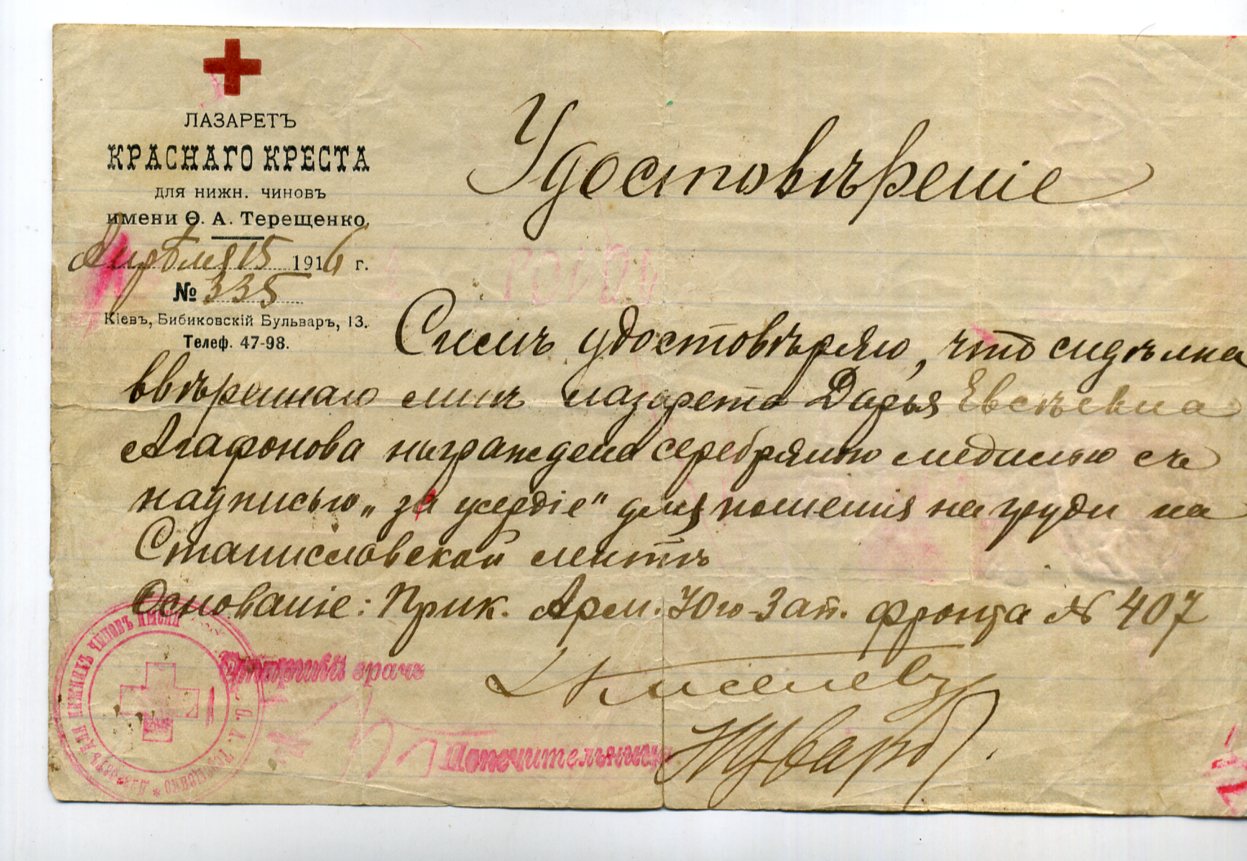 ЛАЗАРЕТЪ
КРАСНАГО КРЕСТА
для нижн. чиновъ
имени Ѳ. А. Терещенко.
Апрѣля 15 1916 г.
№ 335
Кіевъ, Бибиковскій Бульваръ, 13.
Телеф. 47-98.
Удостовѣреніе
Симъ удостовѣряю, что сидѣлка
ввѣреннаго мнѣ лазарета Дарья Евсѣевна
Агафонова награждена серебряною медалью съ
надписью „за усердіе“ для ношенія на груди на
Станиславской лентѣ
Основаніе: Прик. Арм. Юго-Зап. фронта № 407
Старшій врачъ
Киселевъ
Попечительница